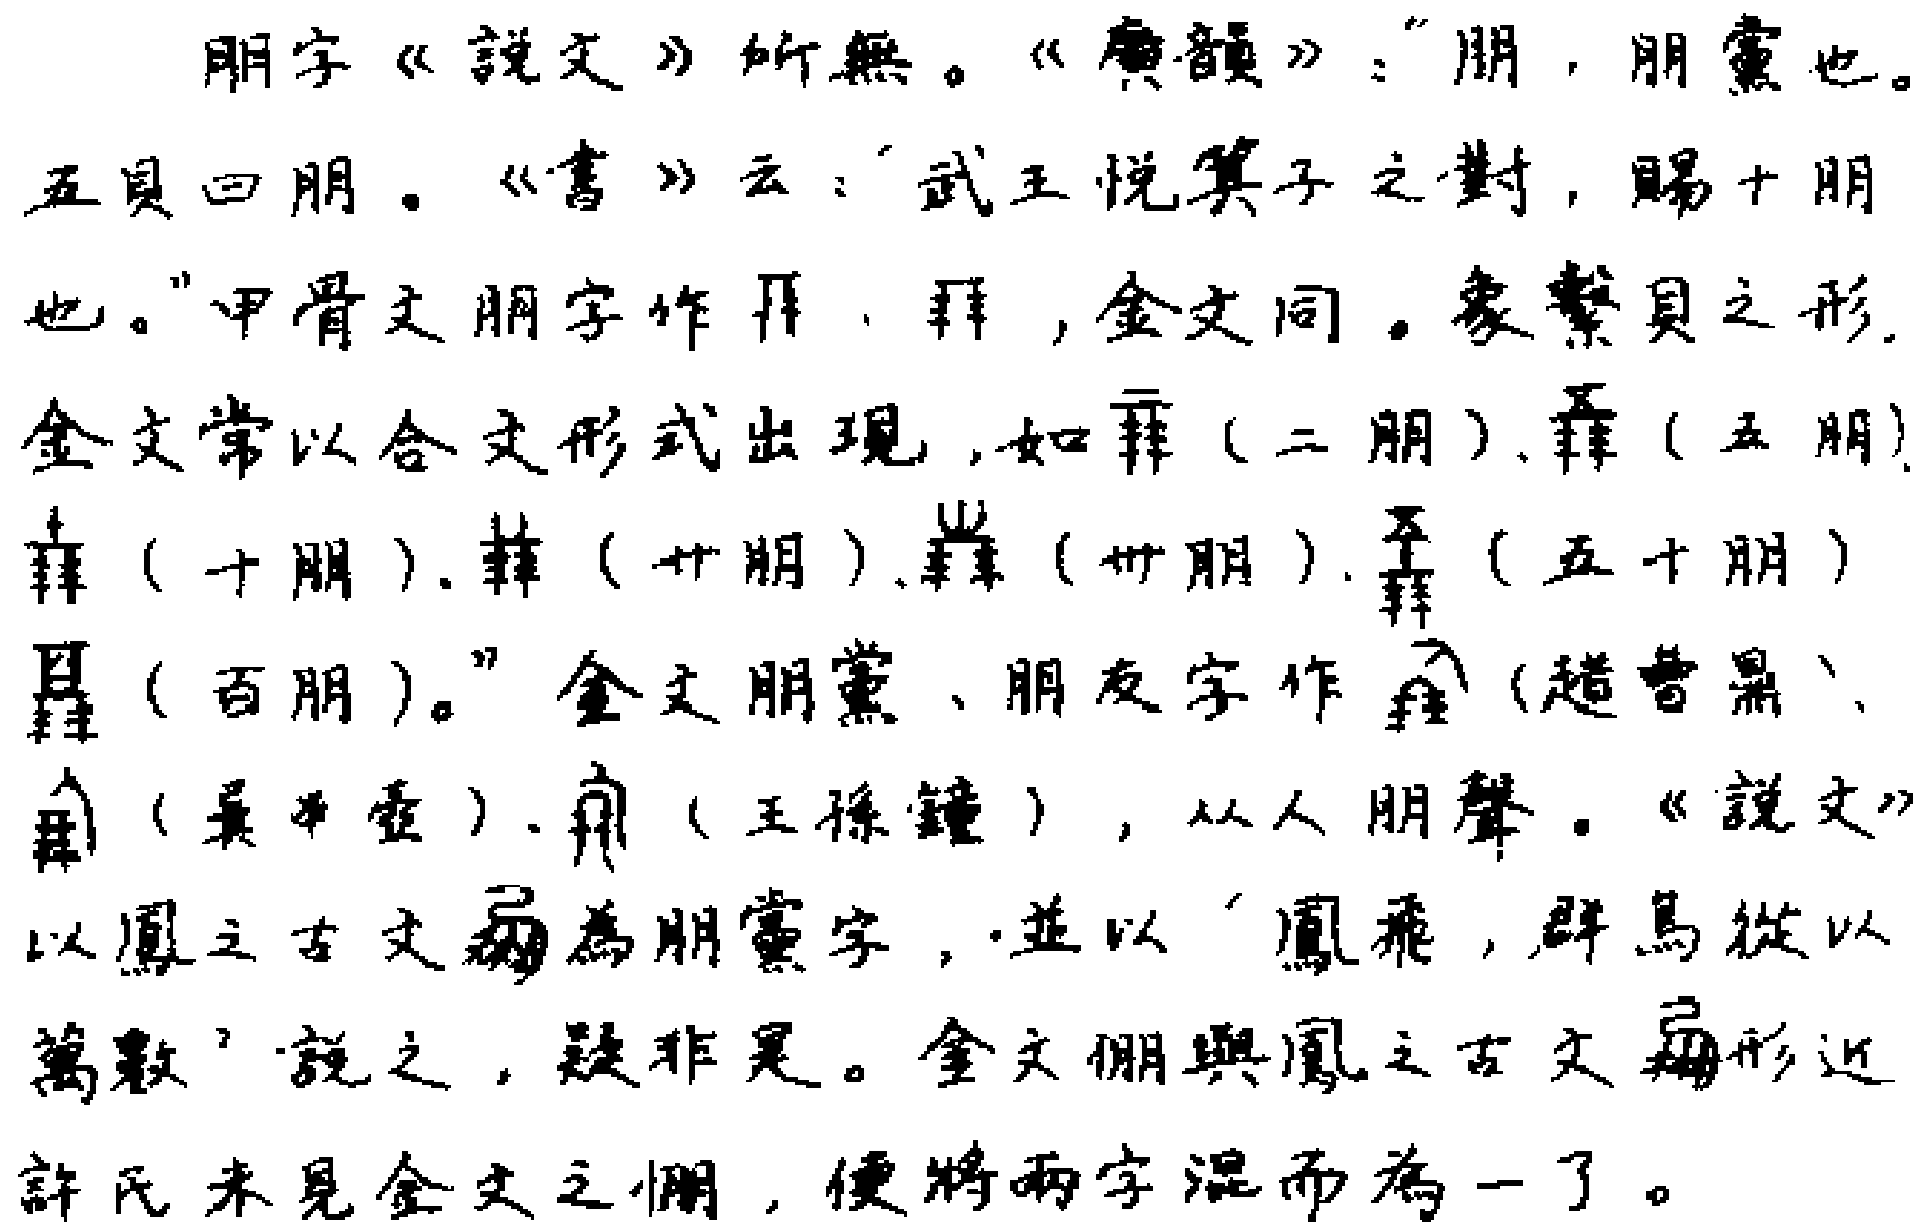 朋字《説文》所無。《廣韻》："朋，朋黨也。
五貝曰朋。《書》云：'武王悦箕子之對，賜十朋
也。"甲骨文朋字作、，金文同。象繫貝之形.
金文常以合文形式出現，如（二朋）、（五朋）、
（十朋）、（廿朋）、（卅朋）、（五十朋）
（百朋）。"金文朋黨、朋友字作（趞曹鼎）、
（壺）、（王孫鐘），从人朋聲。《説文》
以鳳之古文為朋黨字，並以'鳳飛，群鳥從以
萬數'説之，疑非是。金文倗與鳳之古文形近
許氏未見金文之倗，便將兩字混而為一了。